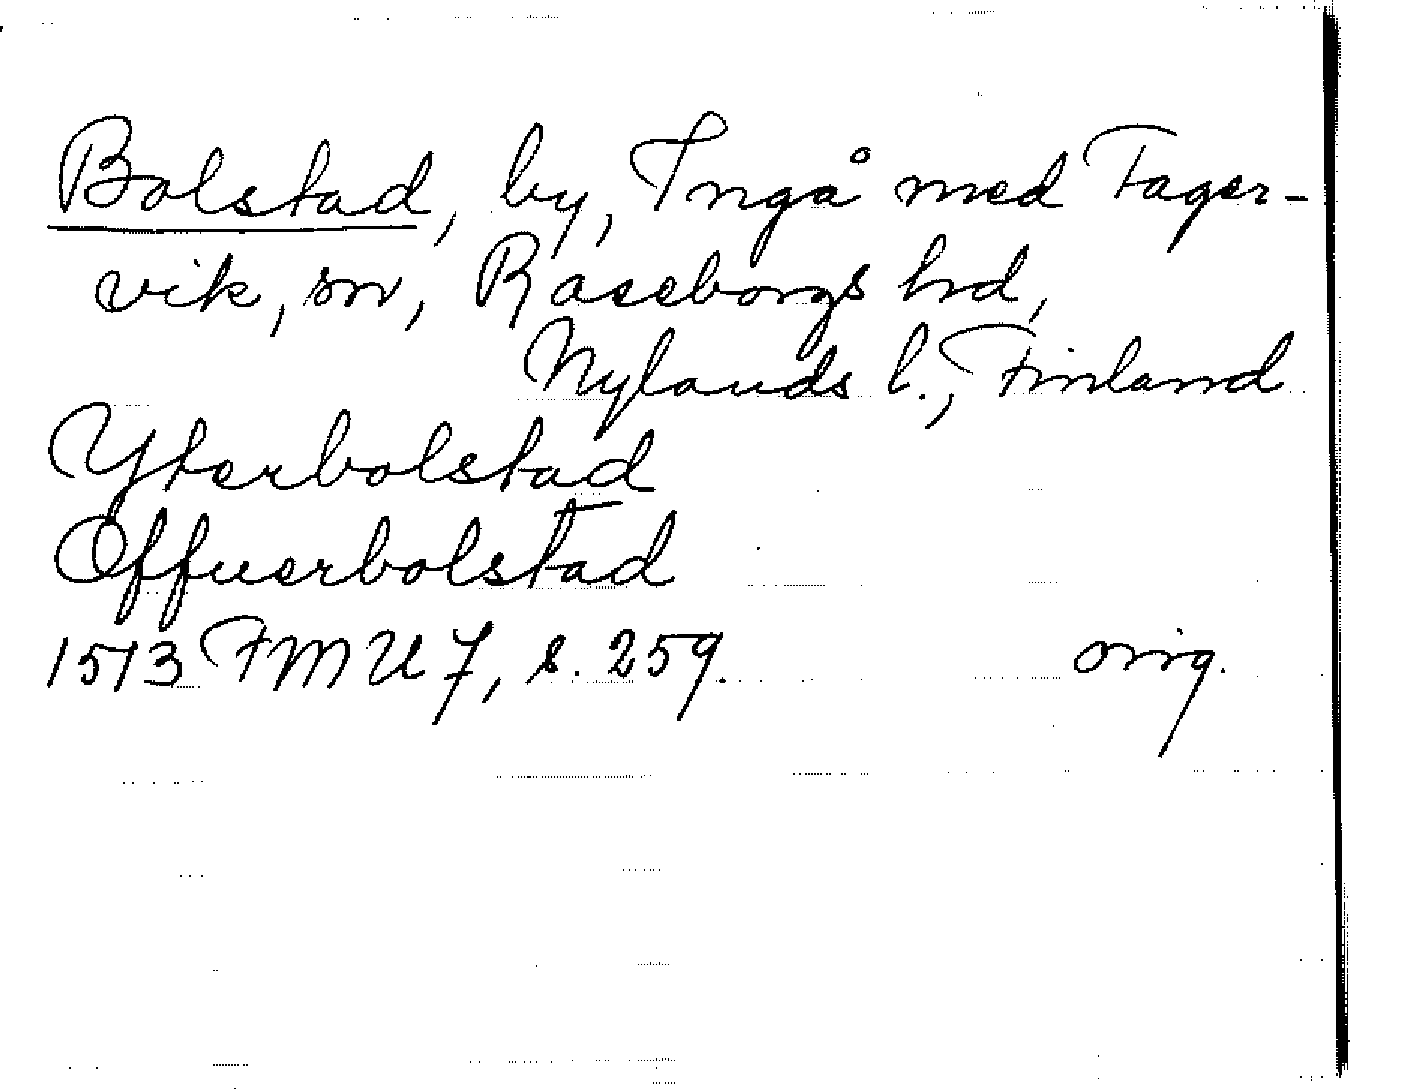 Bolstad, by, Ingå med Fager-
vik, sn, Raseborgs hd,
Nylands l., Finland
Yterbolstad
Offuerbolstad
1513 FMU 7, s. 259. orig.